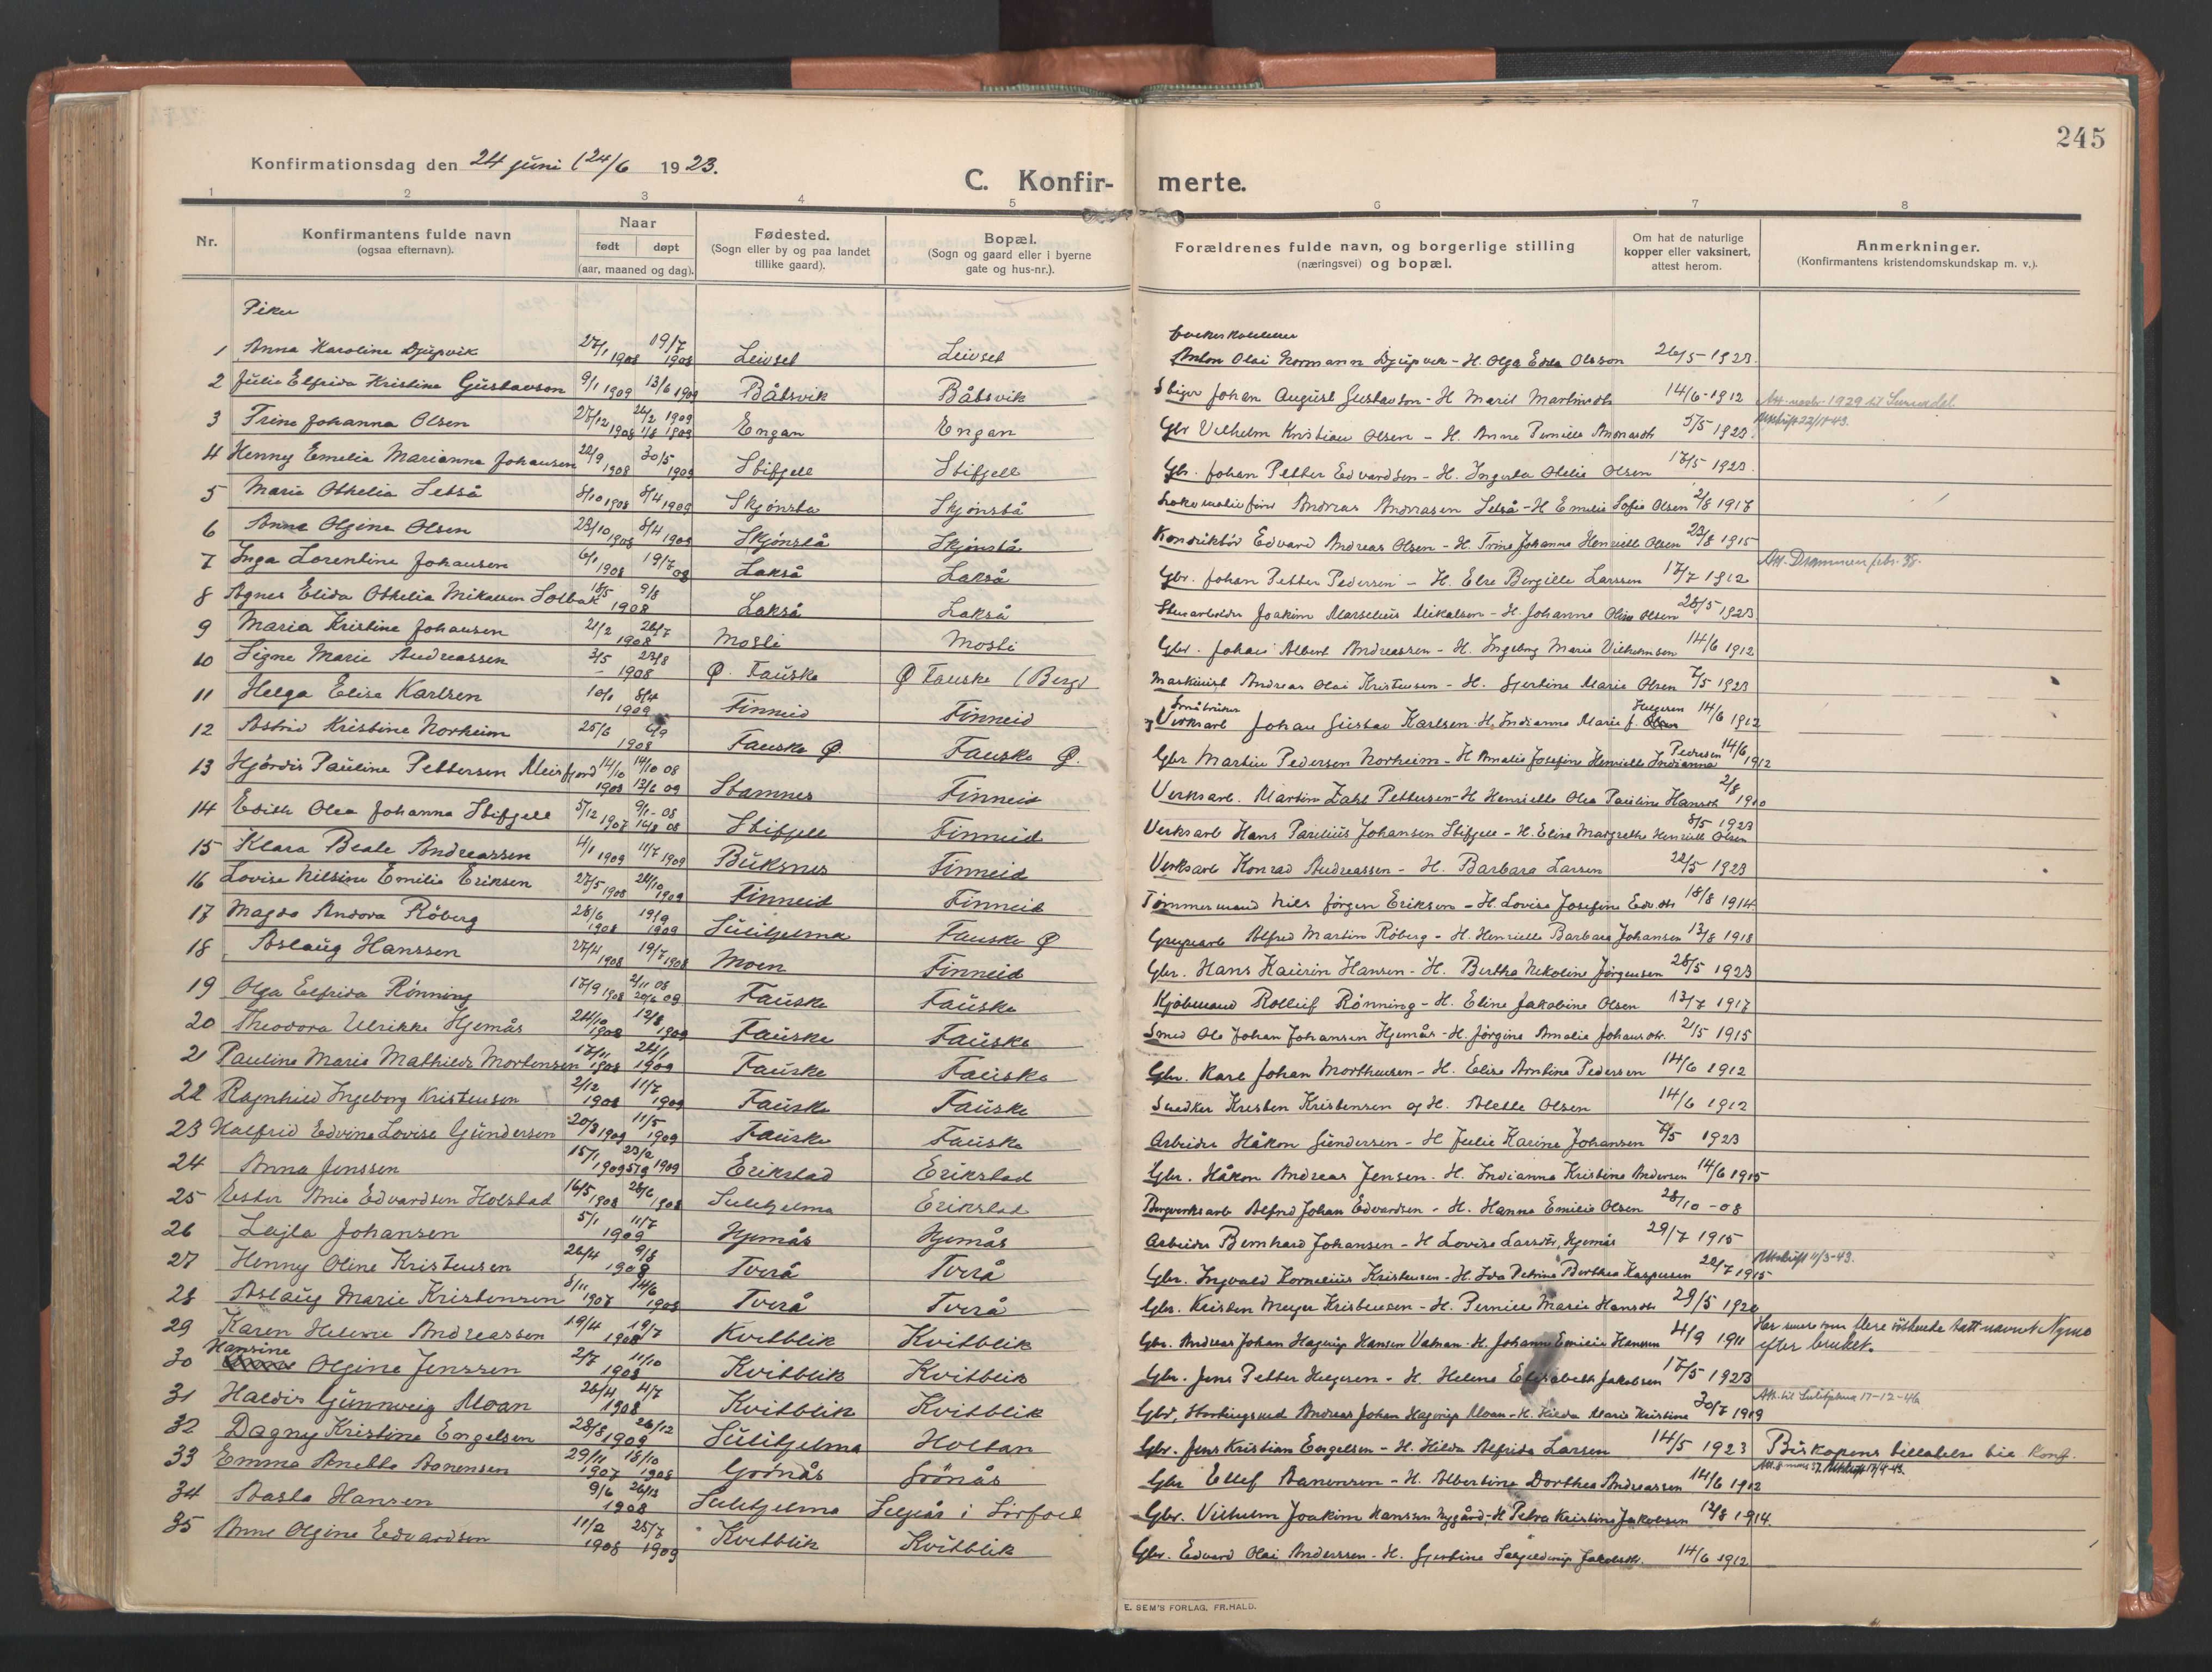 245
Konfirmationsdag den 24 juni (24/6 1923.
C. Konfirmerte.
1 2 3 4 5 6 7 8
Nr. Konfirmantens fulde navn (ogsaa efternavn). Naar født døpt (aar, maaned og dag). Fødested. (Sogn eller by og paa landet tillike gaard). Bopæl. (Sogn og gaard eller i byerne gate og hus-nr.). Forældrenes fulde navn, og borgerlige stilling (næringsvei) og bopæl. Om hat de naturlige kopper eller vaksinert, attest herom. Anmerkninger. (Konfirmantens kristendomskundskap m. v.).
Piker
1 Anna Karoline Djupvik 27/1 1908 19/7 1908 Leivset Leivset Anton Olai Normann Djupvik - H. Olga Edea Olsson 26/5 - 1923
2 Julie Elfrida Kristine Gustavson 9/1 1909 13/6 1909 Båtsvik Båtsvik Stiger Johan August Gustavson - H Marit Martinsdtr 14/6 - 1912
3 Trine Johanna Olsen 27/12 1908 Engan Engan Gbr Vilhelm Kristian Olsen - H. Anne Pernille 5/5 1923 Utskrift 22/11-43.
4 Henny Emelie Marianna Johansen 22/9 1908 30/5 1909 Stifjell Stifjell Gbr. Johan Petter Edvardsen - H. Ingerta Otelie Olsen 17/5 1923
5 Marie Othelia Setså 8/10 1908 8/4 1909 Skjönsta Skjönstå Andreas Andreasen Setså - H Emelie Sofie Olsen 2/8 1917
6 Anne Olgine Olsen 23/10 1908 8/4 1909 Skjönstå Skjönstå Konduktör Edvard Andreas Olsen - H. Trine Johanna Henriette Olsen 23/8 1915
7 Inga Lorentine Johansen 6/1 1908 19/7 08 Lakså Lakså Gbr. Johan Petter Pedersen - H. Else Bergitte Larssen 17/7 1912 Att. Drammen febr. 38.
8 Agnes Elida Othelia Mikalsen Solbak 18/5 9/8 1908 Lakså Lakså Joakim Marselius Mikalsen - H. Johanna Olsen 28/5 1923
9 Maria Kristine Johansen 21/2 26/7 1908 Mosti Mosti Gbr. Johan Albert Andreassen - H. Ingeborg Marie Vilhelmsen 14/6 1912
10 Signe Marie Andreassen 3/5 23/8 1908 Ø. Fauske Ø Fauske (Berg) Maskinist Andreas Olai Kristensen - H. Gjertine Marie Olsen 7/5 1923
11 Helga Elise Karlsen 10/1 8/4 1909 Finneid Finneid Verksarb Johan Gustav Karlsen - H. Indianna Marie f. Olsen 14/6 1912
12 Astrid Kristine Norheim 25/6 6/9 1908 Fauske Ø. Fauske Ø. Gbr Martin Pedersen Norheim - H Amalie Josefine Henriette Indianna Pedersen 14/6 1912
13 Hjördis Pauline Pettersen Meisfjord 14/10 1908 14/10 08 12/6 09 Stamnes Finneid Verksarb. Martin Zahl Pettersen - H Henriette Olea Pauline Hansdtr 2/8 1910
14 Edith Olea Johanna Stifjell 5/12 1907 9/1 - 08 Stifjell Finneid Verksarb Hans Parelius Johansen Stifjell - H. Elise Margrethe Henriette Olsen 8/5 1923
15 Klara Beate Andreassen 4/1 1909 11/7 1909 Buksnes Finneid Verksarb Konrad Andreassen - H. Barbara Larsen 22/5 1923
16 Lovise Nilsine Emilie Eriksen 27/5 1908 24/10 1909 Finneid Finneid Tömmermand Nils Jörgen Eriksen - H. Lovise Josefine Edv.dtr 18/8 1914
17 Magda Andora Röberg 28/6 1908 19/9 1909 Sulitjelma Fauske Ø Grupearb Alfred Martin Röberg - H. Henriette Barbara Johansen 13/8 1918
18 Aslaug Hanssen 27/4 1908 19/7 1908 Moen Finneid Gbr. Hans Kaurin Hansen - H. Bertha Nikoline Jörgensen 28/5 1923
19 Olga Elfrida Rönning 17/9 1908 2/11 08 20/6 09 Fauske Fauske Kjöbmand Rolleif Rönning - H. Eline Jakobine Olsen 13/7 1917
20 Theodora Ulrikke Hjemås 24/10 1908 12/8 1909 Fauske Fauske Smed Ole Johan Johansen Hjemås - H. Jörgine Amalie Johansdtr. 2/5 1915
21 Pauline Marie Mathilde Mortensen 17/11 1908 24/1 1909 Fauske Fauske Gbr. Karl Johan Morthensen - H. Elise Arntine Pedersen 14/6 1912
22 Ragnhild Ingeborg Kristensen 2/12 1908 11/7 1909 Fauske Fauske Snedker Kresten Kristensen og H. Alette Olsen 14/6 1912
23 Halfrid Edvine Lovise Gundersen 20/3 1909 11/5 1909 Fauske Fauske Arbeider Håkon Gundersen - H Julie Karine Johansen 7/5 1923
24 Anna Jenssen 15/1 1909 23/2 5/9 1909 Erikstad Erikstad Gbr. Håkon Andreas Jensen. H. Indianna Kristine Andersen 14/6 1915
25 Ester Anie Edvardsen Holstad 16/5 1908 28/6 1908 Sulitjelma Erikstad Bergverksarb Alfred Johan Edvardsen - H. Hanna Emilie Olsen 28/10 - 08
26 Lajla Johansen 5/1 11/7 1909 Hjemås Hjemås Arbeider Bernhard Johansen - H Lovise Larsdtr, Hjemås 29/7 1915
27 Henny Oline Kristensen 26/4 9/8 1908 Tverå Tverå Gbr. Ingvald Kornelius Kristensen - H. Ida Petrine Berthea Kaspersen 22/7 1915 Utskrift 11/3-43.
28 Aslaug Marie Kristensen 8/11 1907 14/6 1908 Tverå Tverå Gbr. Kristen Meyer Kristensen - H. Pernille Marie Hansdtr 29/5 1920
29 Karen Helene Andreassen 19/4 19/7 1908 Kvitblik Kvitblik Gbr. Andreas Johan Hagerup Hansen Vatnan - H. Johanne Emilie Hansen 4/9 1911 Har senere som flere söskende tatt navnet Nymo efter bruket.
30 Hansine Olgine Jenssen 2/7 11/10 1908 Kvitblik Kvitblik Gbr. Jens Petter Helgesen - H. Helene Elisabeth Jakobsen 17/5 1923
31 Haldis Gunnveig Moan 26/4 4/7 1908 Kvitblik Kvitblik Gbr, Andreas Johan Hagerup Moan - H. Hilda Marie Kristine 30/7 1919 Att. til Sulitjelma 17-12-46
32 Dagny Kristine Engelsen 28/8 26/12 1909 Sulitjelma Holtan Gbr. Jens Kristian Engelsen - H. Hilda Alfrida Larsen 14/5 1923 Biskopens tillatelse til konf.
33 Emma Anette Aanensen 29/11 1907 18/10 1908 Grönås Grönås Gbr Ellef Aanensen - H. Albertine Dorthea Andreassen 14/6 1912
34 Aasta Hansen 9/6 26/12 1908 Sulitjelma i Sörfold Gbr. Vilhelm Joakim Hanssen Nygård - H Petra Kristine Jakobsen 12/8 1914.
35 Anne Olgine Edvardsen 11/2 1908 25/7 1909 Kvitblik Kvitblik Gbr. Edvard Olai Anderssen - H. Gjertine Jakobsdtr. 14/6 1912
E. SEM'S FORLAG, FR.HALD.